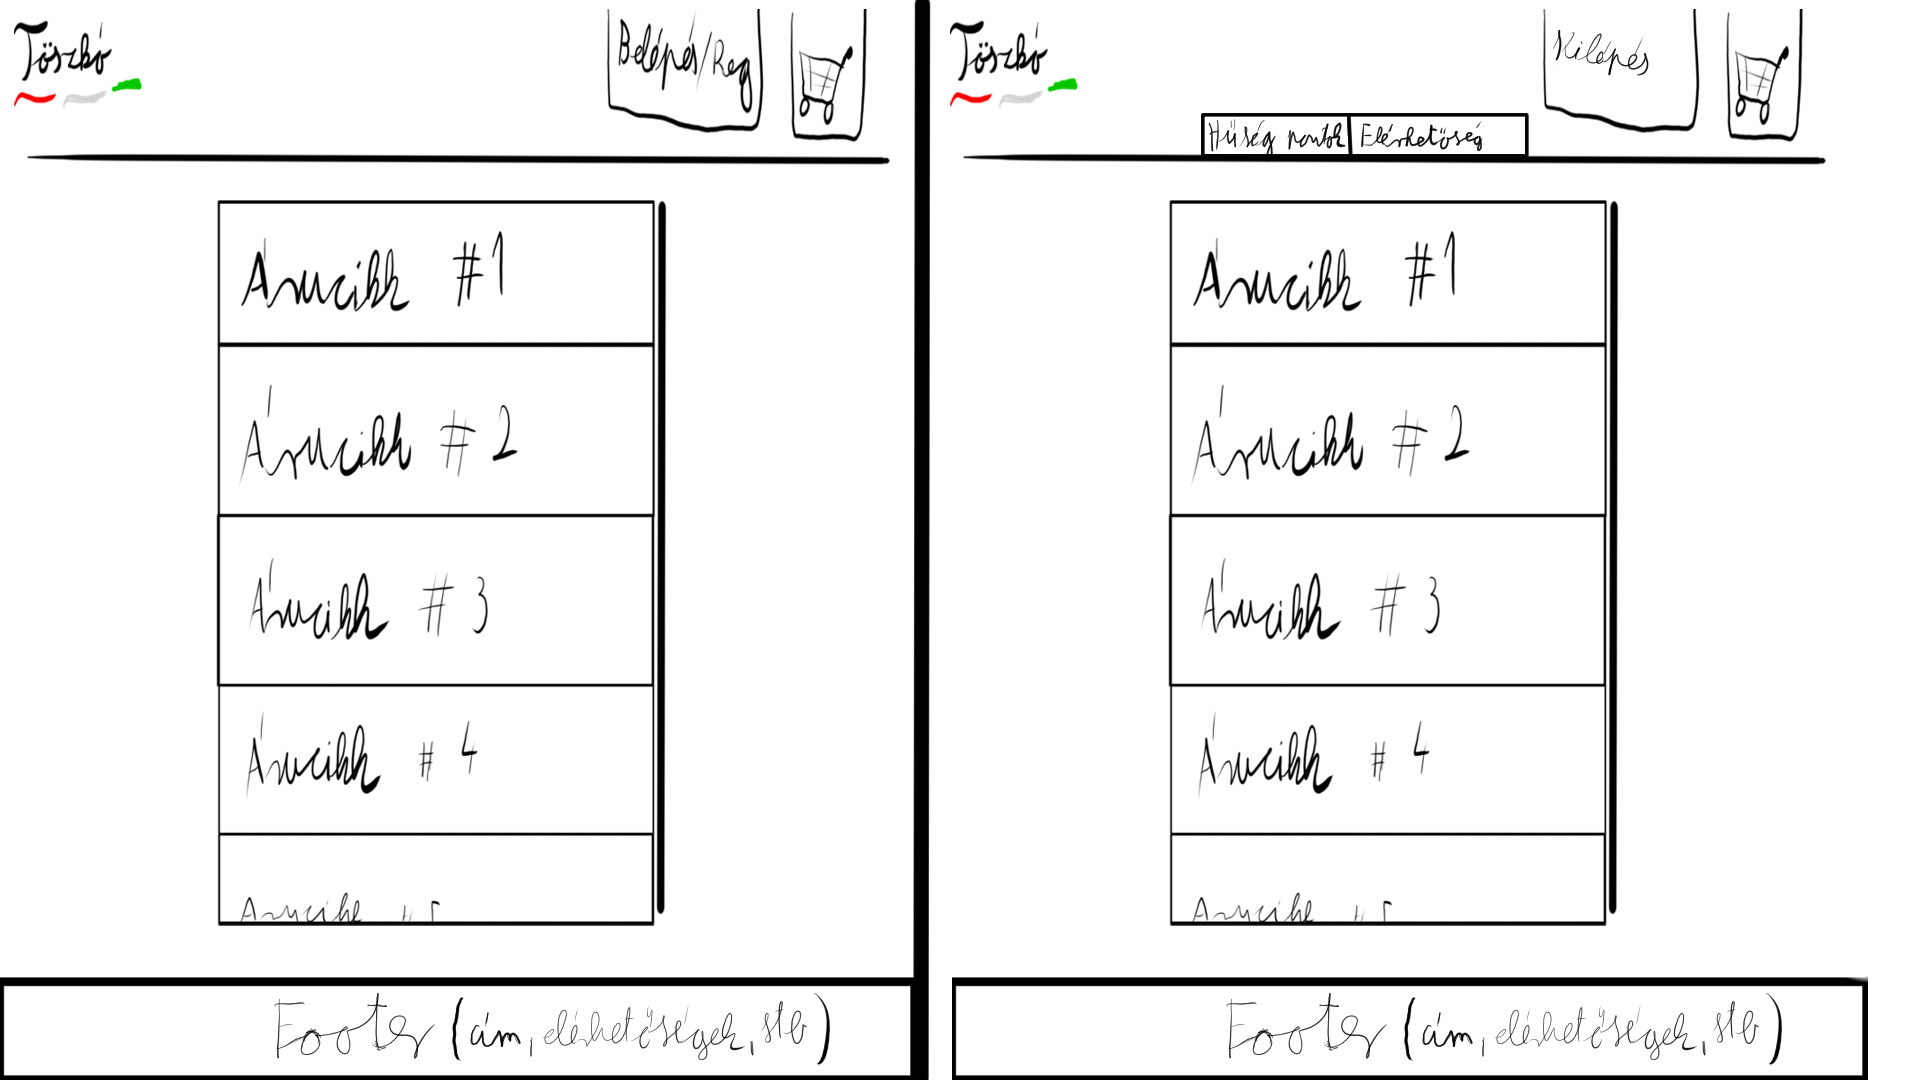 Töszkó
Belépés/Reg
Árucikk #1
Árucikk #2
Árucikk #3
Árucikk #4
Árucikk #5
Footer (cím, elérhetőségek, stb)
Töszkó
Kilépés
Hűség pontok
Elérhetőség
Árucikk #1
Árucikk #2
Árucikk #3
Árucikk #4
Árucikk #5
Footer (cím, elérhetőségek, stb)